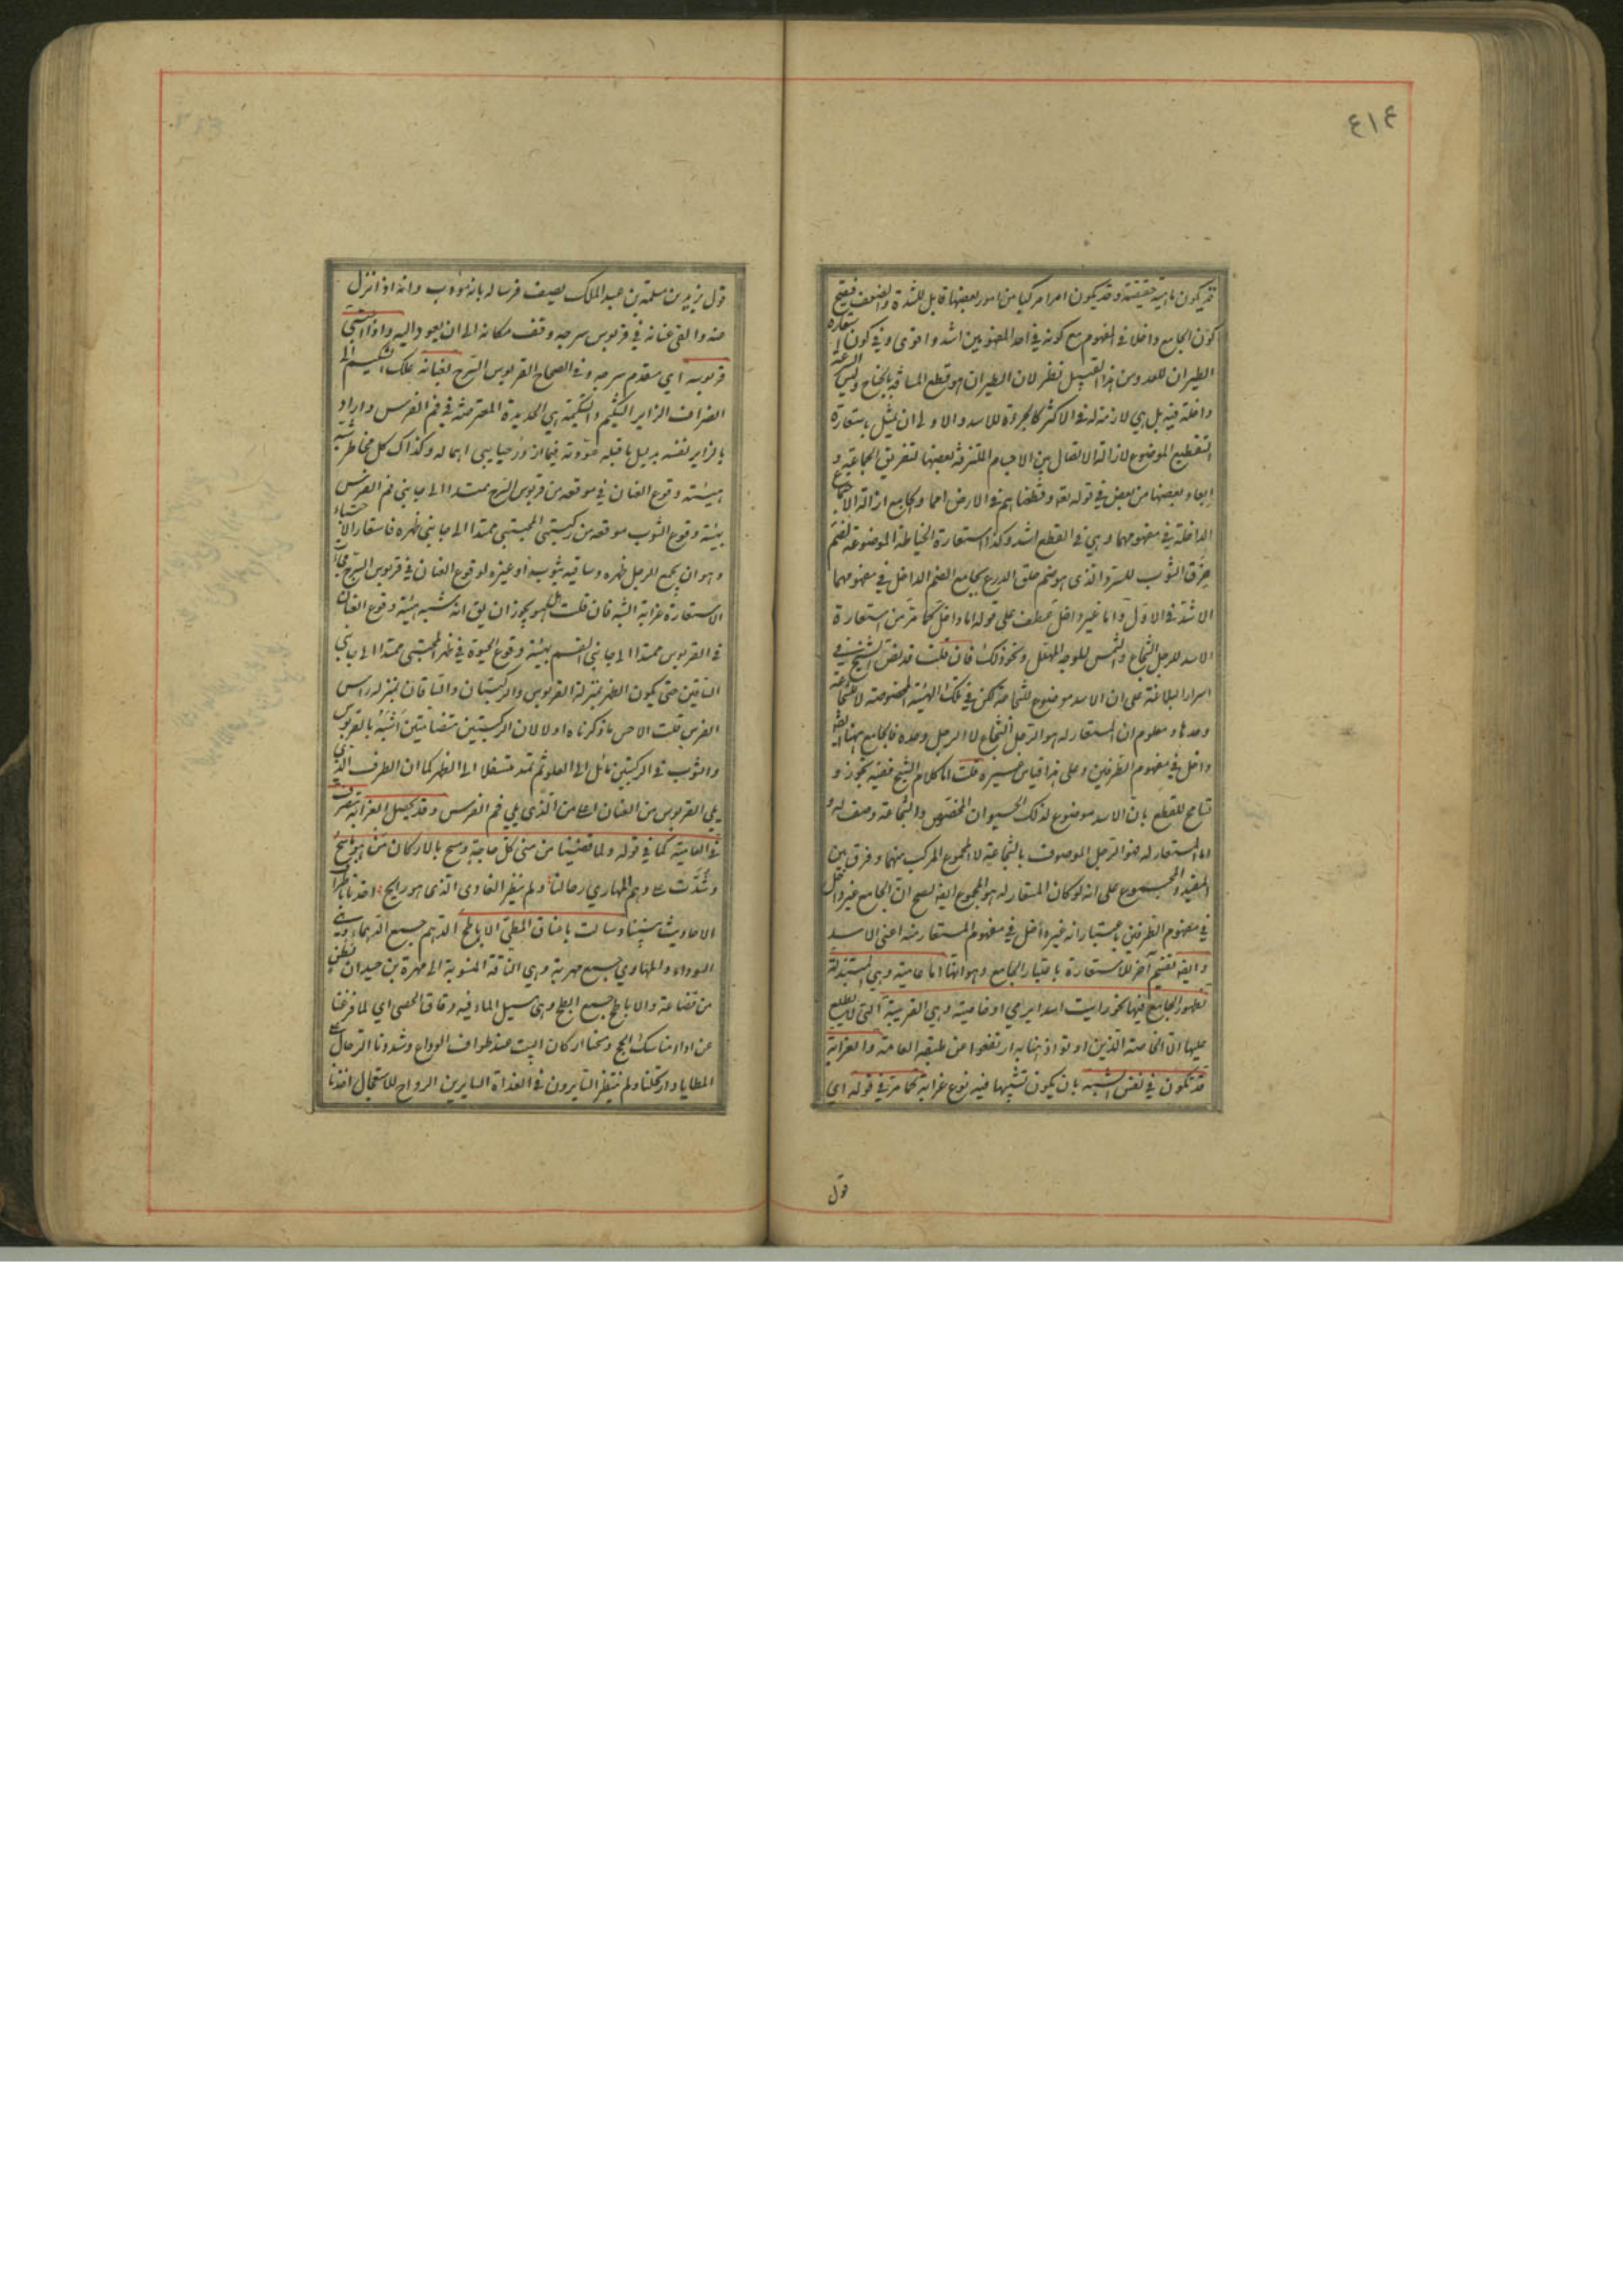 ٤١٤
قد يكون ماهية حقيقية وقد يكون امرا مركبا من امور بعضها قابل للشدة والضعف فيصح
كون الجامع داخلا في المفهوم مع كونه في احد المفهومين اشد واقوى وفي كون استعارة
الطيران للعدو من هذا القبيل نظر لان الطيران هو قطع المسافة بالجناح وليس السرعة
داخلة فيه بل هي لازمة له في الاكثر كالجراءة للاسد والاولى ان يمثل باستعارة
التقطيع الموضوع لازالة الاتصال بين الاجسام الملتزقة بعضها لتفريق الجماعة و
ابعاد بعضها من بعض في قوله تعه وقطعناهم في الارض امما والجامع ازالة الاجتماع
الداخلة في مفهومهما وهي في القطع اشد وكذا استعارة الخياطة الموضوعة لضم
خرق الثوب للسرد الذى هو ضم حلق الدرع بجامع الضم الداخل في مفهومهما
الاشد في الاول واما غير داخل عطف على قوله اما داخل كما مر من استعارة
الاسد للرجل الشجاع والشمس للوجه المتهلل ونحو ذلك فان قلت قد نص الشيخ في
اسرار البلاغة على ان الاسد موضوع للشجاعة لكن في تلك الهيئة المخصوصة لا للشجاعة
وحدها ومعلوم ان المستعار له هو الرجل الشجاع لا الرجل وحده فالجامع ههنا ايضه
داخل في مفهوم الطرفين وعلى هذا قياس غيره قلت اما كلام الشيخ ففيه تجوز و
تسامح للقطع بان الاسد موضوع لذلك الحيوان المخصوص والشجاعة وصف له و
اما المستعار له فهو الرجل الموصوف بالشجاعة لا المجموع المركب منهما وفرق بين
المقيد والمجموع على انه لو كان المستعار له هو المجموع ايضه لصح ان الجامع غير داخل
في مفهوم الطرفين باعتبار انه غير داخل في مفهوم المستعار منه اعنى الاسد
وايضه تقسيم آخر للاستعارة باعتبار الجامع وهو انها اما عامية وهي المبتذلة
لظهور الجامع فيها نحو رايت اسدا يرمي او خاصية وهي الغريبة التى لا يطلع
عليها الا الخاصة الذين اوتوا ذهنا به ارتفعوا عن طبقة العامة والغرابة
قد تكون في نفس الشبه بان يكون تشبيها فيه نوع غرابة كما مر في قوله اي
قول
قول يزيد بن مسلمة بن عبد الملك يصف فرسا له بانه مؤدب وانه اذا نزل
عنه والقى عنانه في قربوس سرجه وقف مكانه الى ان يعود اليه واذا احتبى
قربوسه اي مقدم سرجه وفي الصحاح القربوس السرج بعنانه علك الشكيم الى
انصراف الزاير الشكيم والشكيمة هي الحديدة المعترضة في فم الفرس واراد
بالزاير نفسه بدليل ما قبله عودته فيما ازور حبايبى اهماله وكذاك كل مخاطر شبه
هيئة وقوع العنان في موقعه من قربوس السرج ممتدا الى جانبي فم الفرس
بهيئة وقوع الثوب موقعه من ركبتى المحتبى ممتدا الى جانبي ظهره فاستعار الاحتباء
وهو ان يجمع الرجل ظهره وساقيه بثوب او غيره لوقوع العنان في قربوس السرج فجاءت
الاستعارة غرابة الشبه فان قلت هل يجوز ان يق انه شبه هيئة وقوع العنان
في القربوس ممتدا الى جانبي الفم بهيئة وقوع الحبوة في ظهر المحتبى ممتدا الى جانبي
الساقين حتى يكون الظهر بمنزلة القربوس والركبتان والساقان بمنزلة راس
الفرس قلت الاحسن ما ذكرناه اولا لان الركبتين متضامتين اشبه بالقربوس
والثوب في الركبتين مائل الى العلو ثم تمد متسفلا الى الظهر كما ان الطرف الذى
يلي القربوس من العنان اعلى من الذى يلي فم الفرس وقد يحصل الغرابة بتصرف
في العامية كما في قوله ولما قضينا من منى كل حاجة ومسح بالاركان من هو ماسح
وشدت على دهم المهاري رحالنا ولم ينظر الغادى الذى هو رايح اخذنا باطراف
الاحاديث بيننا وسالت باعناق المطي الاباطح الدهم جمع الدهماء وهي
السوداء والمهاري جمع مهرية وهي الناقة المنسوبة الى مهرة بن حيدان بطن
من قضاعة والاباطح جمع ابطح وهو مسيل الماء فيه دقاق الحصى اي لما فرغنا
عن اداء مناسك الحج ومسحنا اركان البيت عند طواف الوداع وشددنا الرحال على
المطايا وارتحلنا ولم ينتظر السايرون في الغداة السايرين الرواح للاستعجال اخذنا